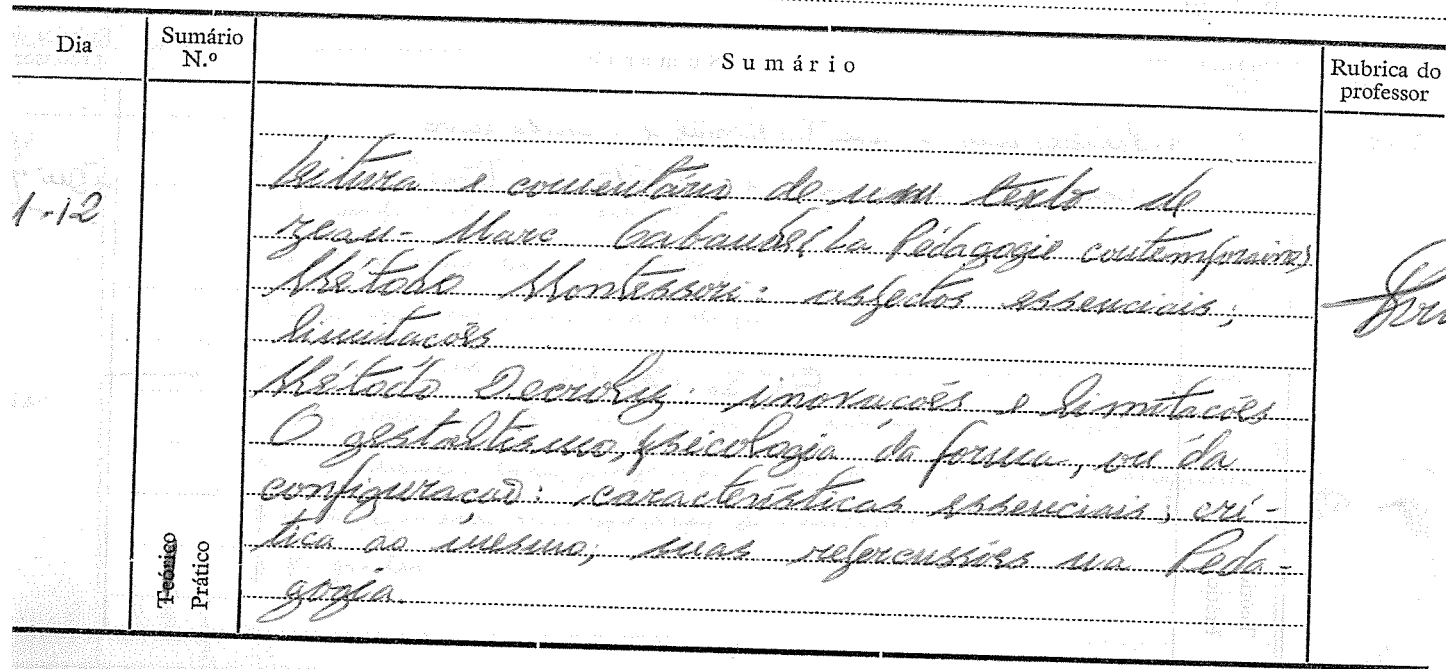 Dia
Sumário
N.º
Sumário
Rubrica do
professor
1-12
Leitura e comentário de um texto de
Jean-Marc Gabaude (La Pédagogie contemporaine)
Método Montessori: aspectos essenciais;
limitações
Método Decroly: inovações e limitações
O gestaltismo, psicologia da forma, ou da
configuração: características essenciais; crí-
tica ao mesmo; suas repercussões na Peda-
gogia.
Teórico
Prático